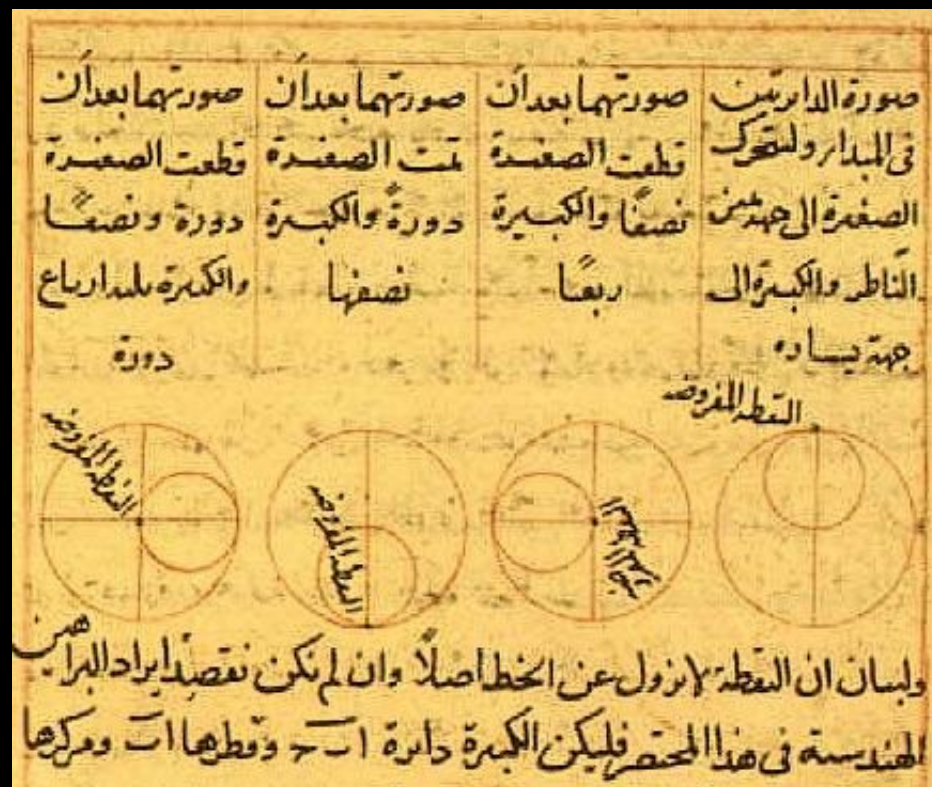 صورة الدائرتين
فى المبدا ولتتحرك
الصغيرة الى جهة يمين
الناظر والكبيرة الى
جهة يساره
صورتهما بعد أن
قطعت الصغيرة
نصفًا والكبيرة
ربعًا
صورتهما بعد أن
تمت الصغيرة
دورةً والكبيرة
نصفها
صورتهما بعد أن
قطعت الصغيرة
دورة ونصفًا
والكبيرة ثلثة ارباع
دورة
النقطة المفروضه
النقطة المفروضه
النقطة المفروضه
النقطة المفروضه
ولبيان ان النقطة لا تزول عن الخط اصلًا وان لم نكن نقصد ايراد البراهين
الهندسية فى هذا المختصر فليكن الكبيرة دائرة ا ب ج وقطرها ا ب ومركزها